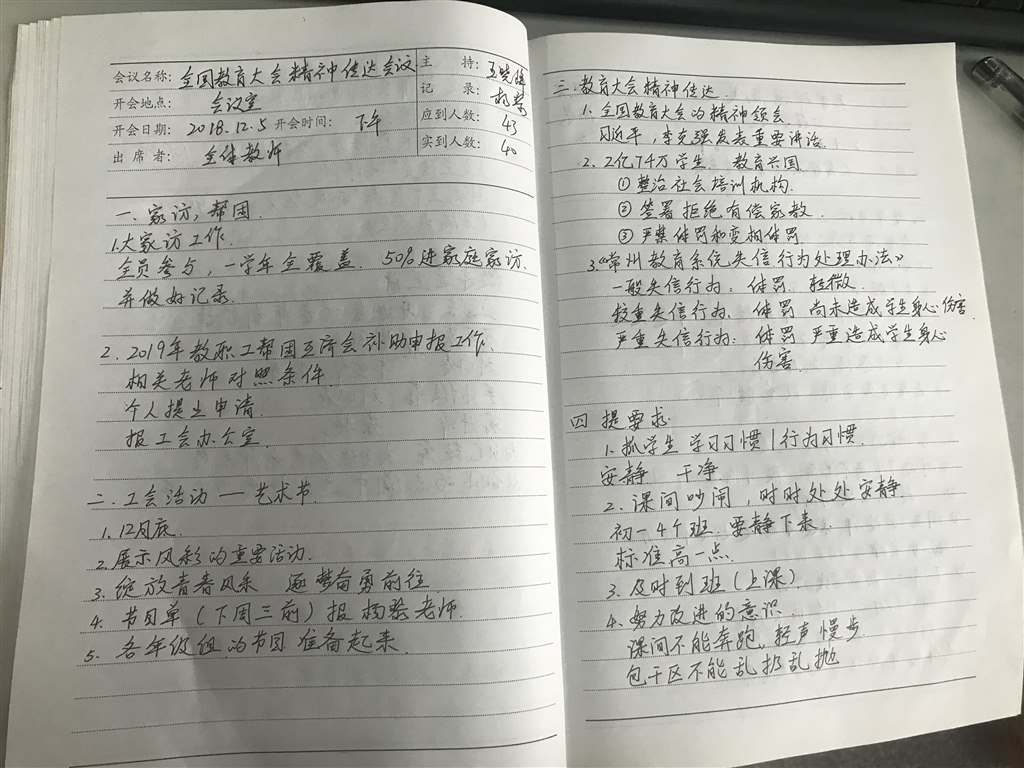 会议名称: 全国教育大会精神传达会议 主 持: 王晓
开会地点: 会议室 记 录: 杨黎
开会日期: 2018.12.5 开会时间: 下午 应到人数: 43
出 席 者: 全体教师 实到人数: 40
一. 家访, 帮困.
1.大家访工作.
全员参与, 一学年全覆盖. 50%进家庭家访.
并做好记录.
2. 2019年教职工帮困互济会补助申报工作.
相关老师对照条件.
个人提出申请
报工会办公室.
二. 工会活动 — 艺术节
1. 12月底.
2. 展示风彩的重要活动.
3. 绽放青春风采 逐梦奋勇前往
4. 节目单 (下周三前) 报 杨黎老师
5. 各年级组的节目 准备起来.
三. 教育大会精神传达.
1. 全国教育大会的精神领会
习近平, 李克强发表重要讲话.
2. 2亿74万学生. 教育兴国
① 整治社会培训机构.
② 签署拒绝有偿家教.
③ 严禁体罚和变相体罚
3.《常州教育系统失信行为处理办法》
一般失信行为: 体罚. 轻微.
较重失信行为: 体罚 尚未造成学生身心伤害
严重失信行为: 体罚 严重造成学生身心
伤害.
四 提要求.
1. 抓学生 学习习惯 | 行为习惯.
安静 干净
2. 课间吵闹, 时时处处安静
初一4个班 要静下来.
标准高一点.
3. 及时到班 (上课)
4. 努力改进的意识.
课间不能奔跑, 轻声慢步.
包干区不能乱扔乱抛